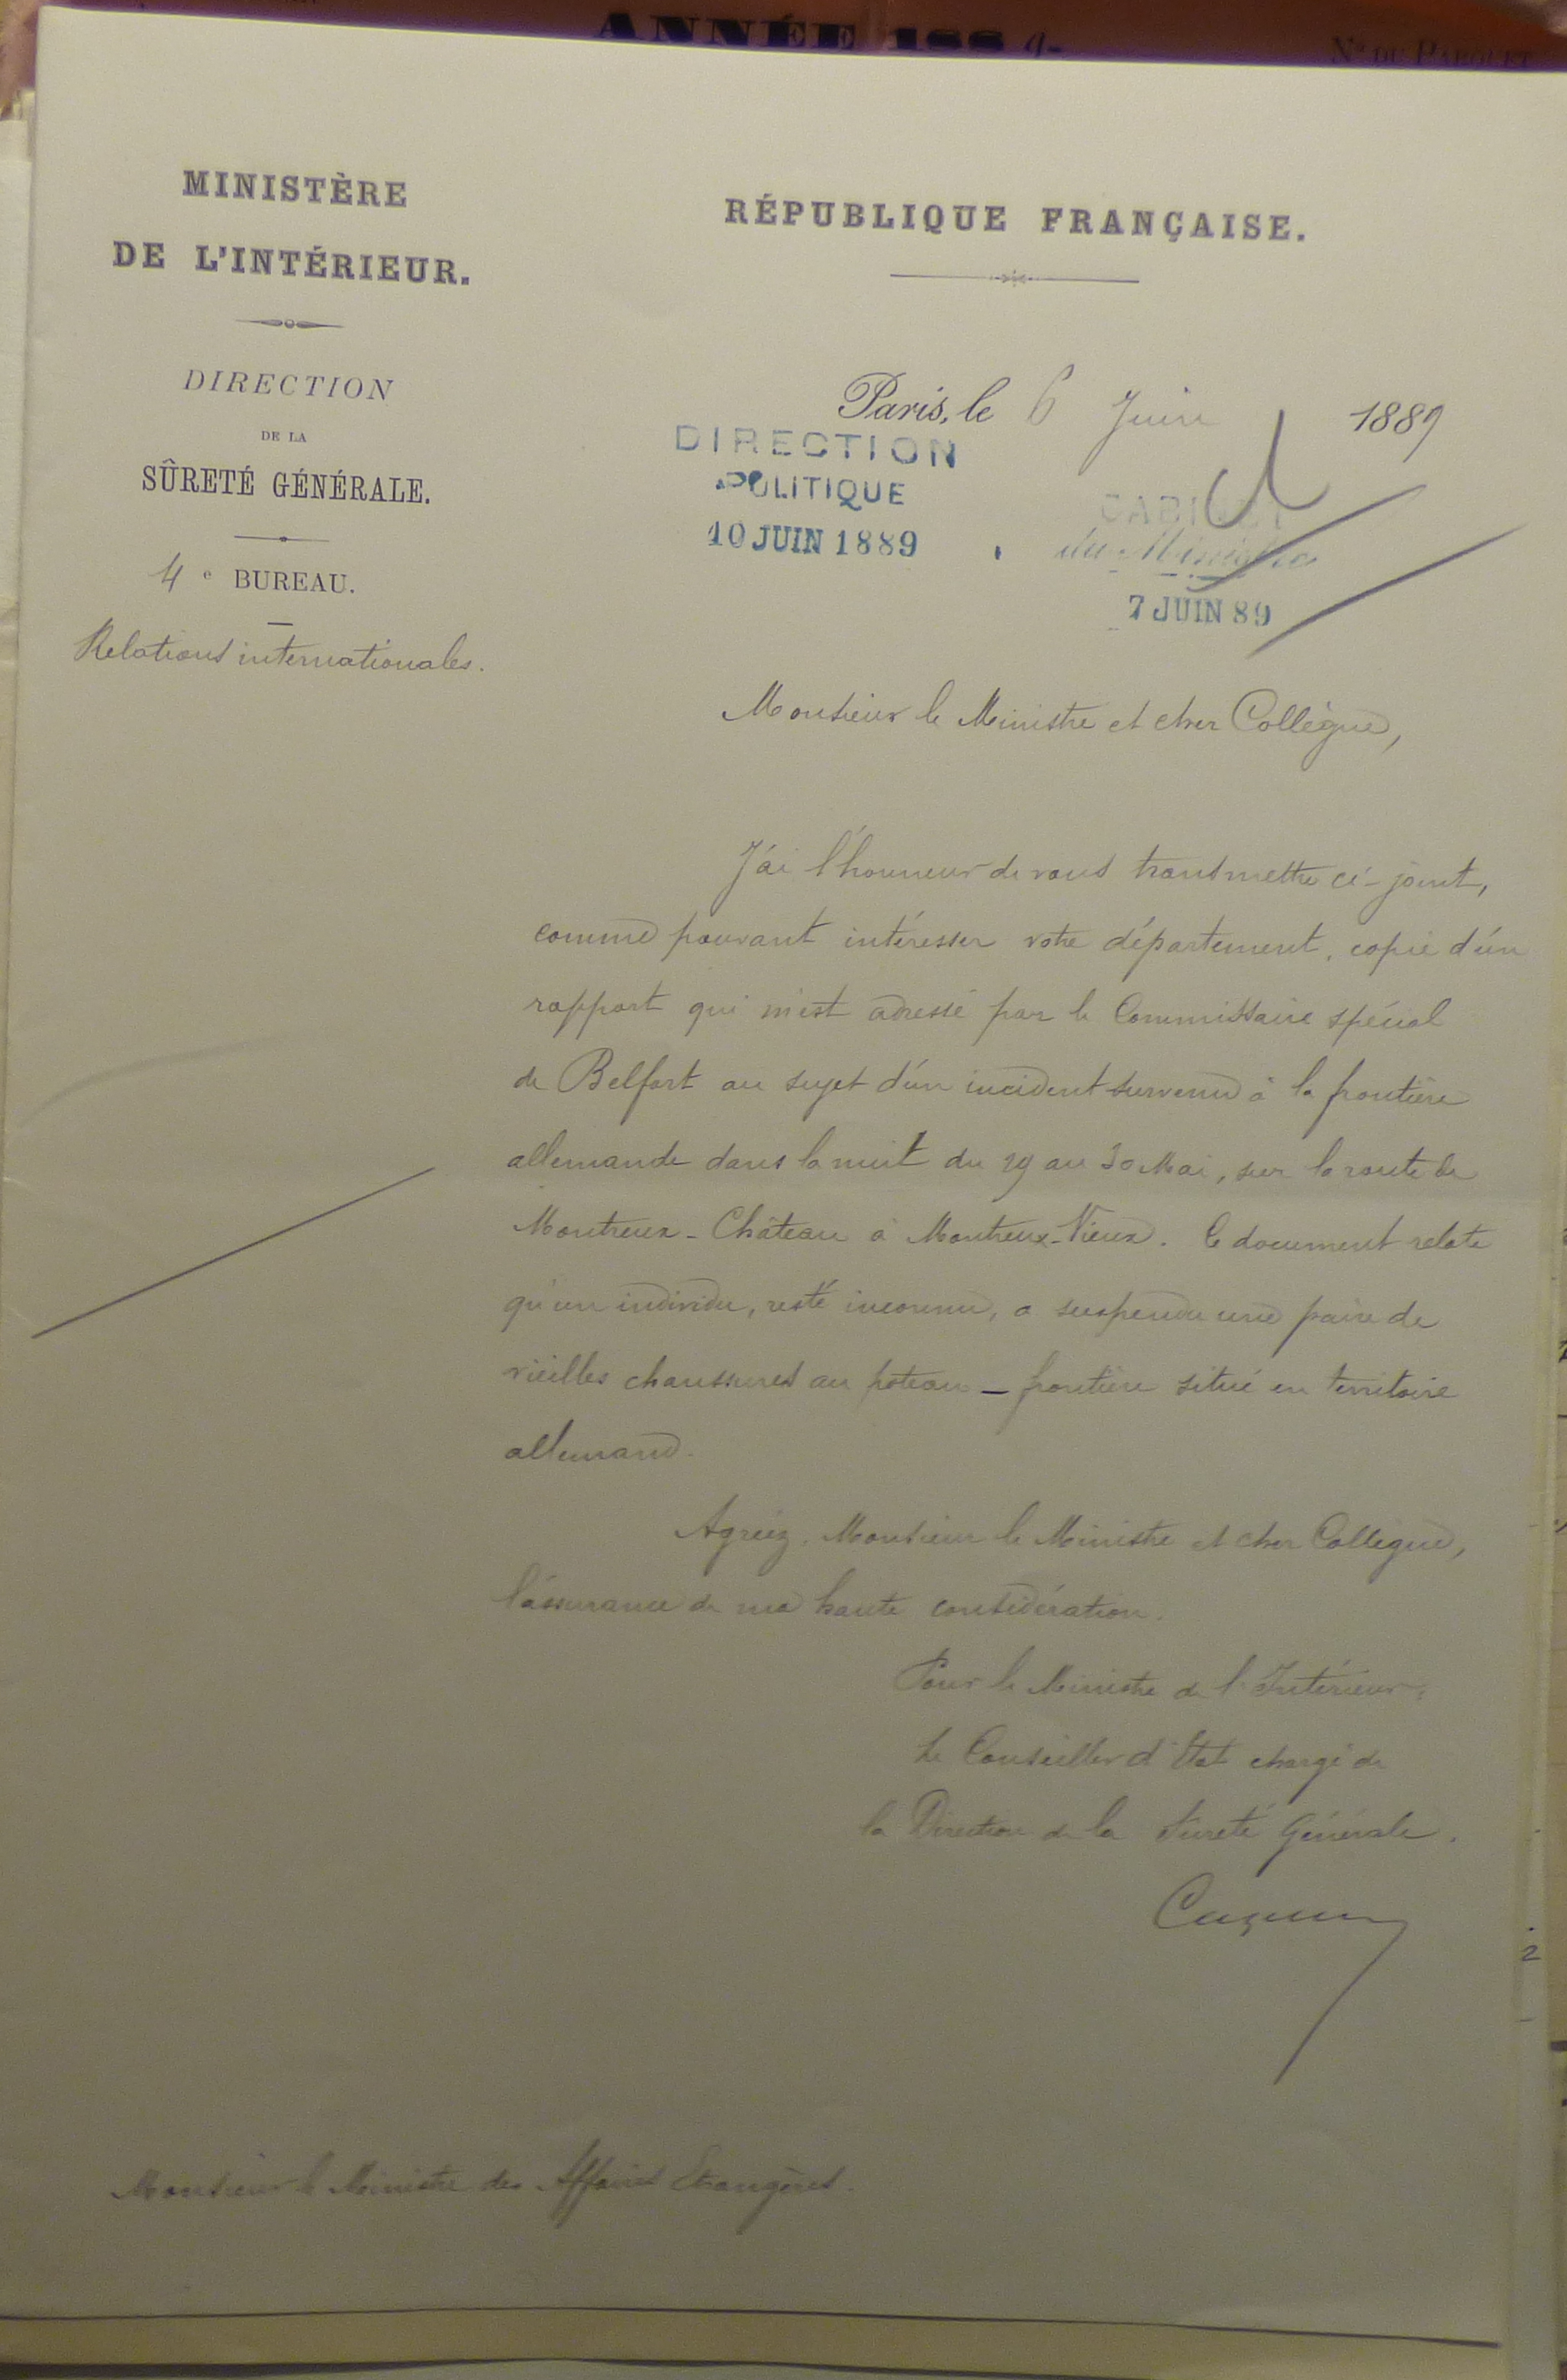 ANNÉE 1889
N° DU PARQUET
MINISTÈRE
DE L'INTÉRIEUR.
DIRECTION
DE LA
SÛRETÉ GÉNÉRALE.
4e BUREAU.
Relations internationales.
RÉPUBLIQUE FRANÇAISE.
Paris, le 6 Juin 1889
DIRECTION
POLITIQUE
10 JUIN 1889
CABINET
du Ministre
7 JUIN 89
Monsieur le Ministre et cher Collègue,
J'ai l'honneur de vous transmettre ci-joint,
comme pouvant intéresser votre département, copie d'un
rapport qui m'est adressé par le Commissaire spécial
de Belfort au sujet d'un incident survenu à la frontière
allemande dans la nuit du 29 au 30 Mai, sur la route de
Montreux-Château à Montreux-Vieux. Ce document relate
qu'un individu, resté inconnu, a suspendu une paire de
vieilles chaussures au poteau-frontière situé en territoire
allemand.
Agréez, Monsieur le Ministre et cher Collègue,
l'assurance de ma haute considération.
Pour le Ministre de l'Intérieur,
Le Conseiller d'Etat chargé de
la Direction de la Sureté Générale.
Monsieur le Ministre des Affaires Etrangères.
2